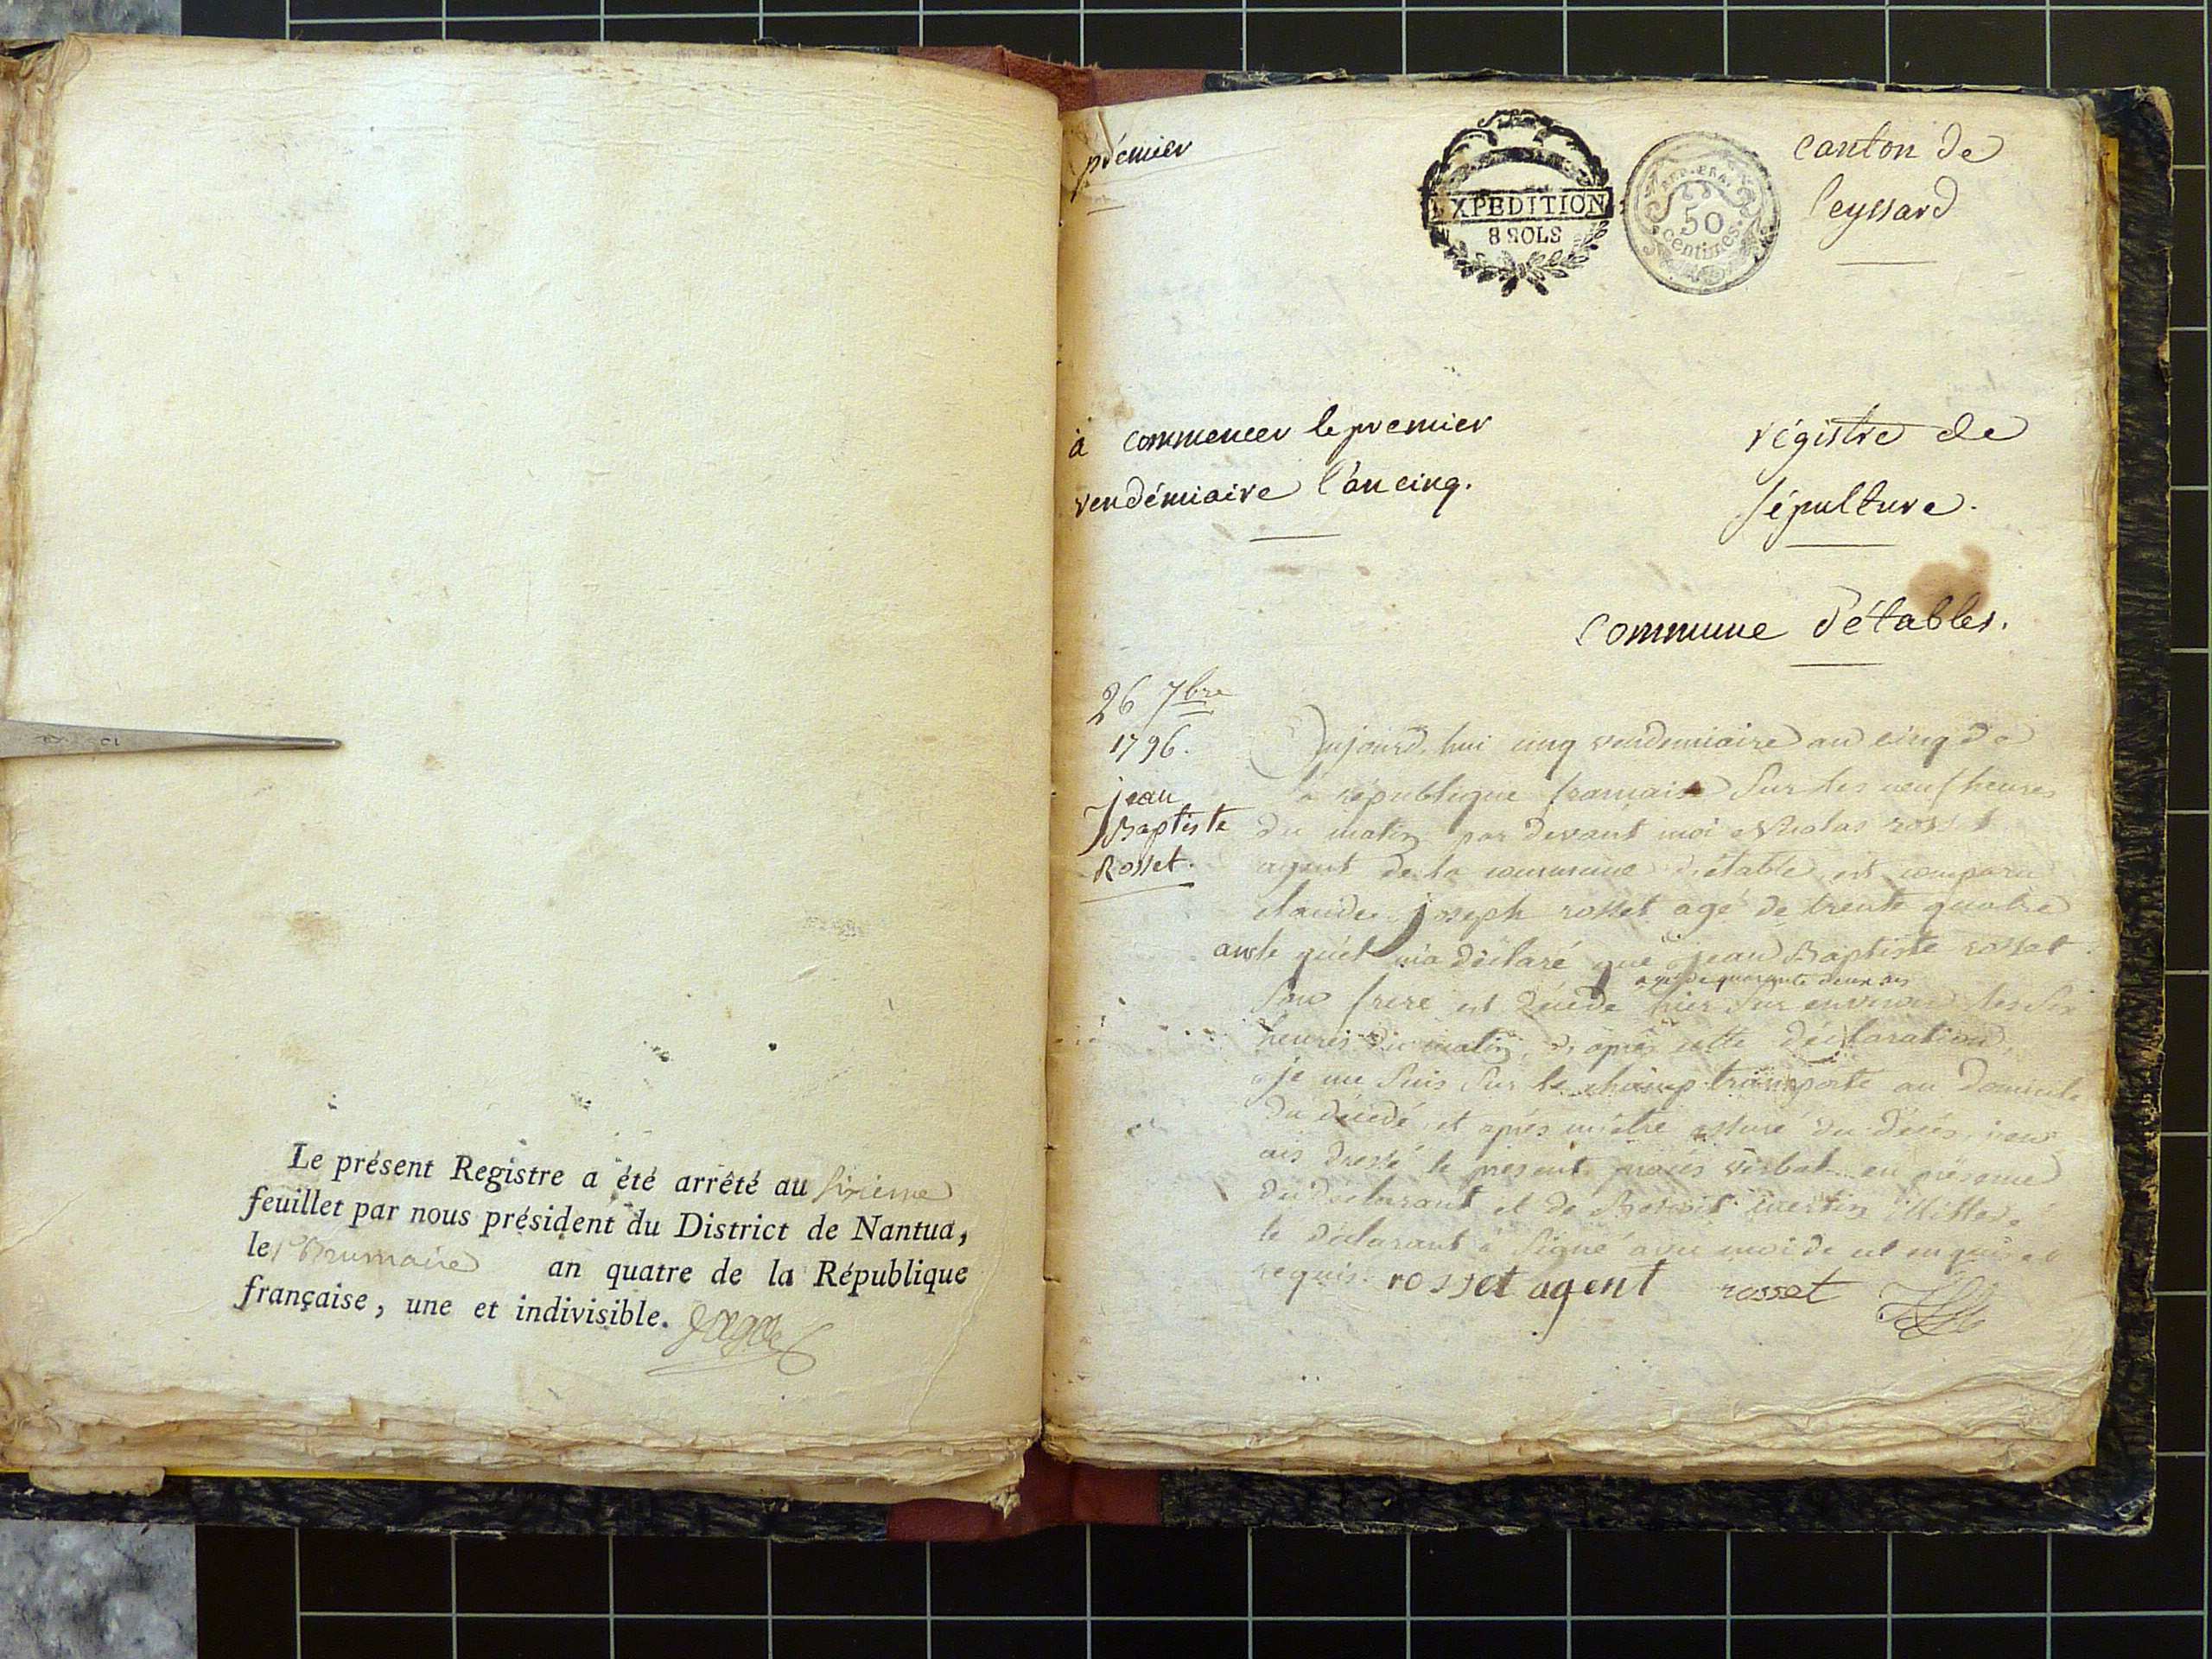 Le présent Registre a été arrêté au sixieme
feuillet par nous président du District de Nantua,
le brumaire an quatre de la République
française, une et indivisible.
prémier
EXPEDITION
8 SOLS
REP. FRA.
50
centimes.
canton de
leyssard
à commencer le premier
vendémiaire l'an cinq.
régistre de
sépulture.
commune d'étables.
26 7bre
1796.
jean
Baptiste
Rosset.
Aujourd'hui cinq vendemiaire an cinq de
la république francaise sur les neuf heures
du matin par devant moi Nicolas rosset
agent de la commune d'étable est comparu
claude joseph rosset agé de trente quatre
ans le quel m'a déclaré que jean Baptiste rosset
agé de quarante deux ans
son frere est décédé hier sur environ les six
heures du matin, d'après cette déclaration,
je me suis sur le champ transporté au domicile
du décédé, et après m'etre assuré du décés, j'en
ais dressé le présent procés verbal en présence
du déclarant et de Benoit illitteré
le déclarant à signé avec moi de ce enquis et
requis. rosset agent rosset